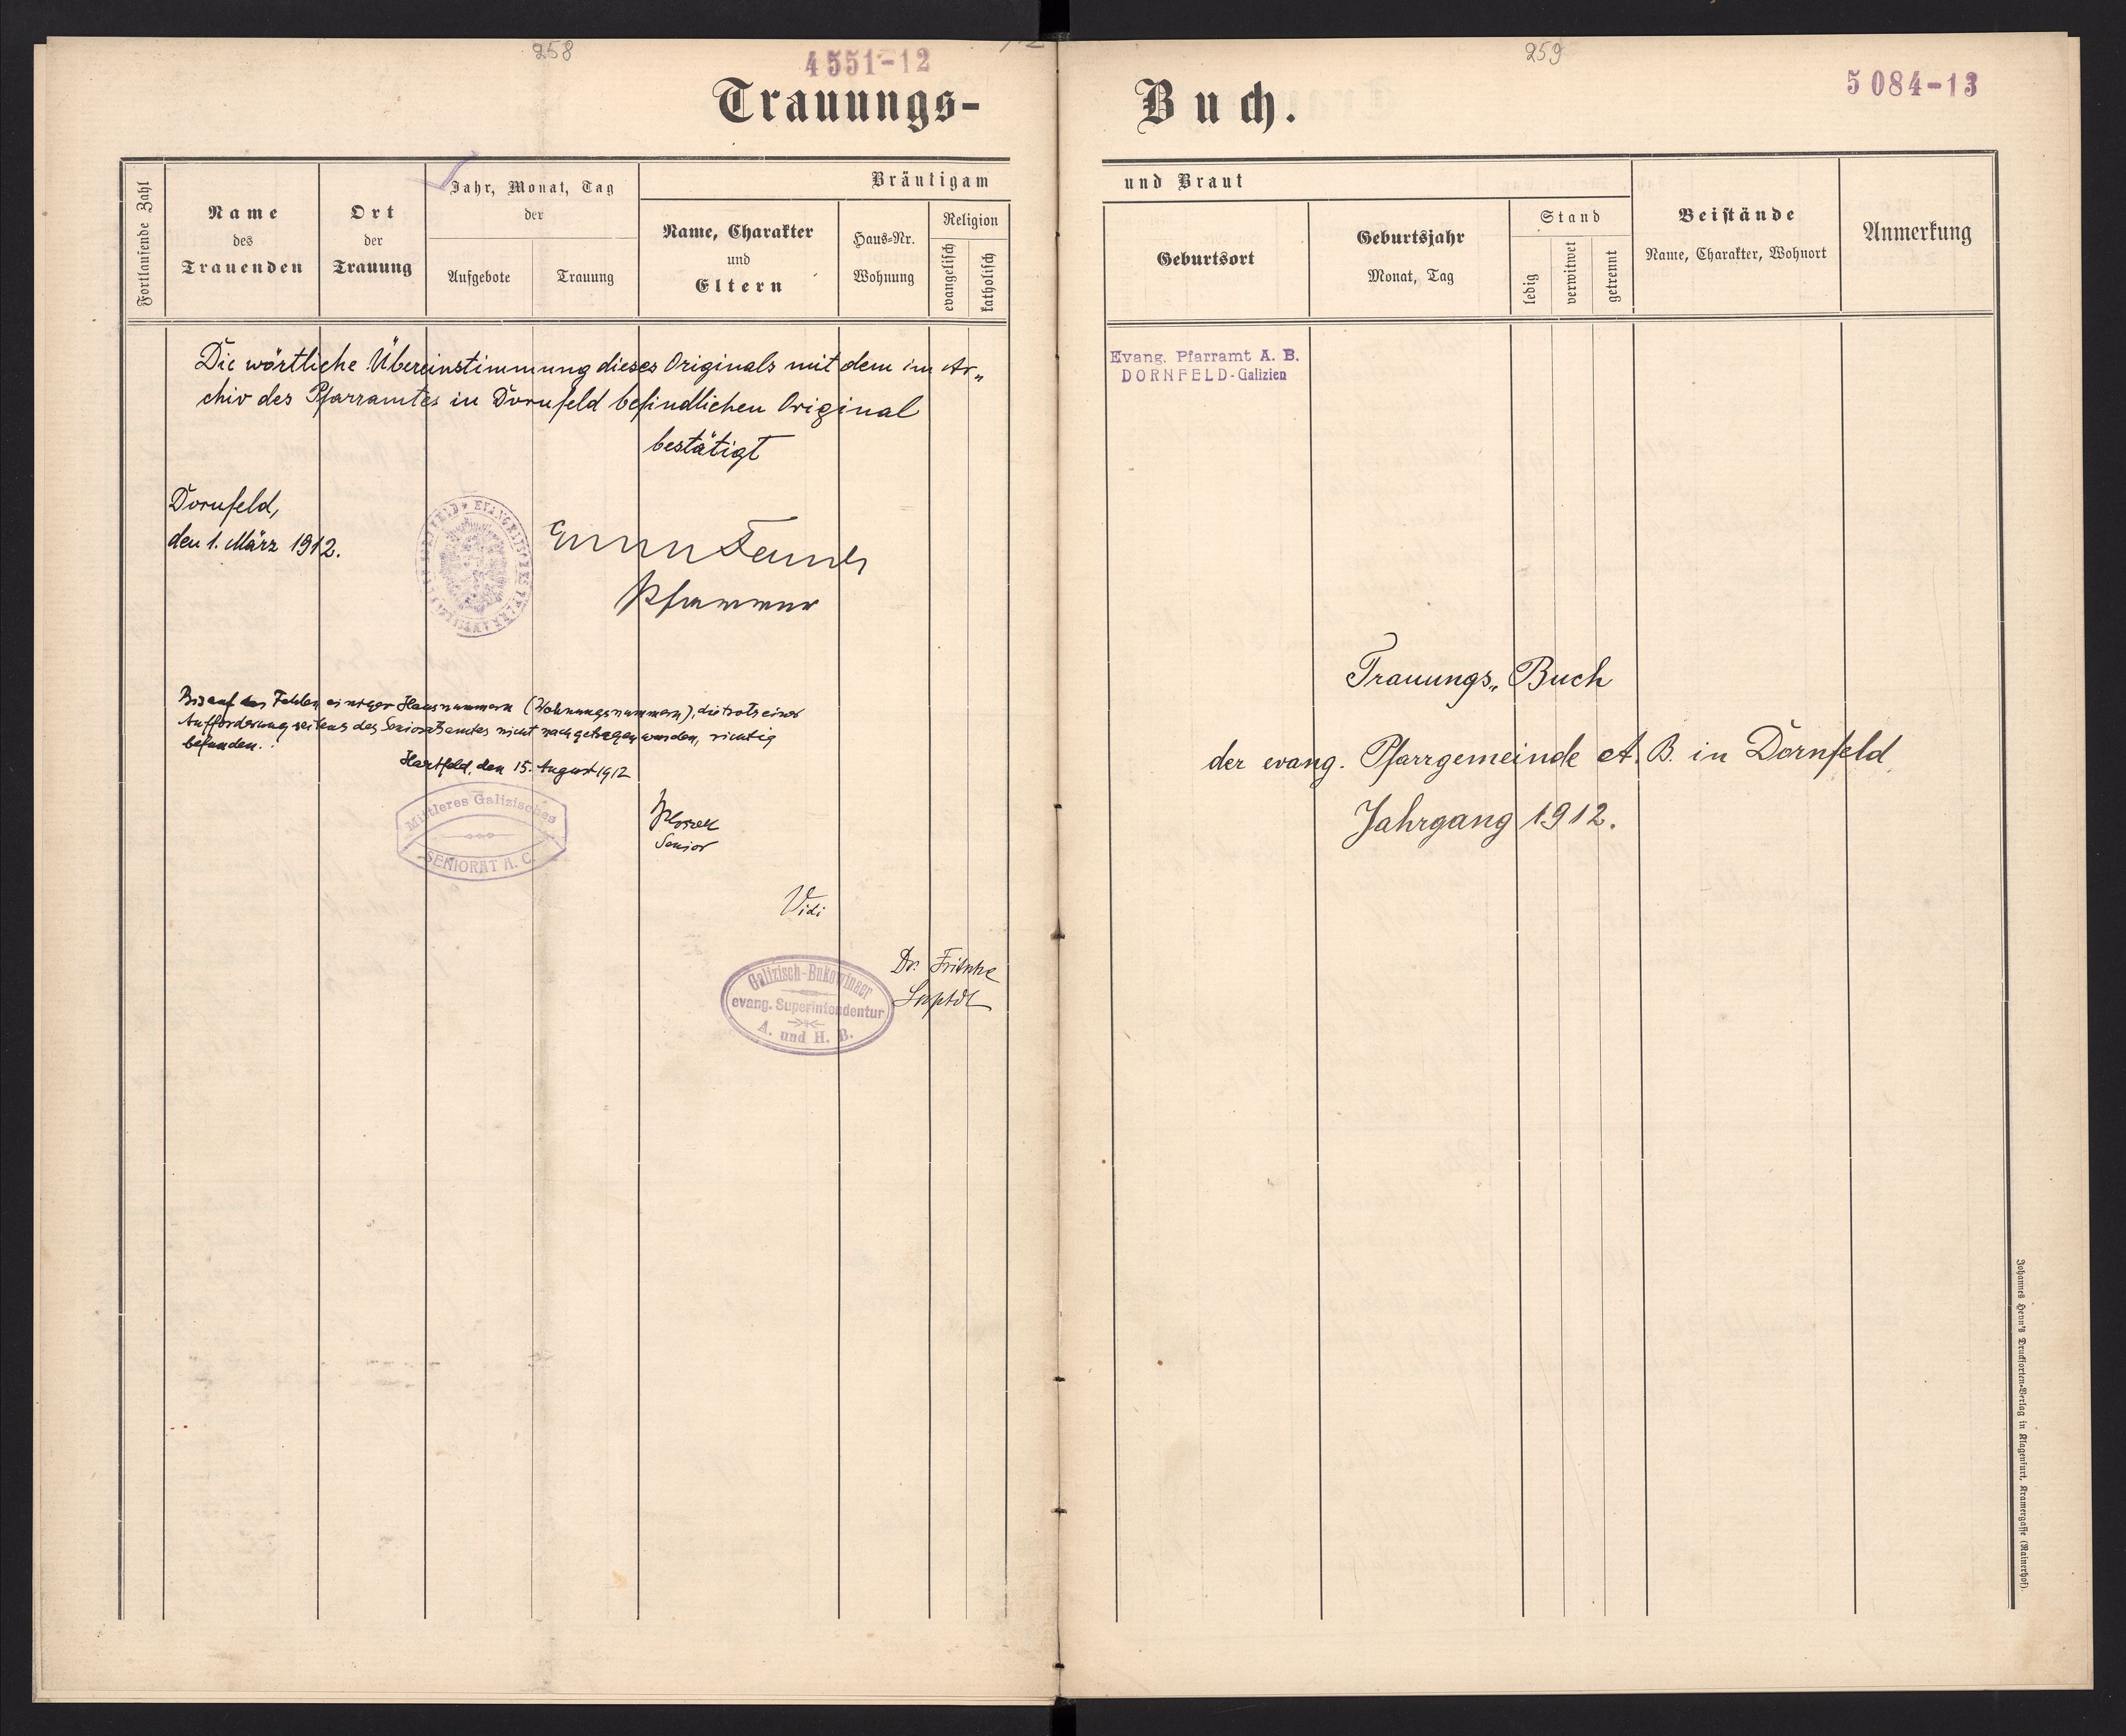 258
4551-12
Trauungs-
Fortlaufende Zahl
Name
des
Trauenden
Ort
der
Trauung
Jahr, Monat, Tag
der
Aufgebote
Trauung
Bräutigam
Name, Charakter
und
Eltern
Haus-Nr.
Wohnung
Religion
evangelisch
katholisch
Die wörtliche Übereinstimmung dieses Originals mit dem im Ar„
chiv des Pfarramtes in Dornfeld befindlichen Original
bestätigt
Dornfeld,
den 1. März 1912.
Pfarrer
Bis auf das Fehlen einiger Hausnummern (Wohnungsnummern), die trotz einer
Aufforderung seitens des Senioratsamtes nicht nachgetragen wurden, richtig
befunden.
Hartfeld, den 15. August 1912
Mittleres Galizisches
SENIORAT A. C.
Senior
Vidi
Galizisch-Bukowinaer
evang. Superintendentur
A. und H. B.
Dr. Fritsche
Suptdt
259
5084-13
Buch.
und Braut
Geburtsort
Geburtsjahr
Monat, Tag
Stand
ledig
verwitwet
getrennt
Beistände
Name, Charakter, Wohnort
Anmerkung
Evang. Pfarramt A. B.
DORNFELD-Galizien
Trauungs„ Buch
der evang. Pfarrgemeinde A. B. in Dornfeld
Jahrgang 1912.
Johannes Heyn's Drucksorten-Verlag in Klagenfurt, Kramergasse (Rainerhof).